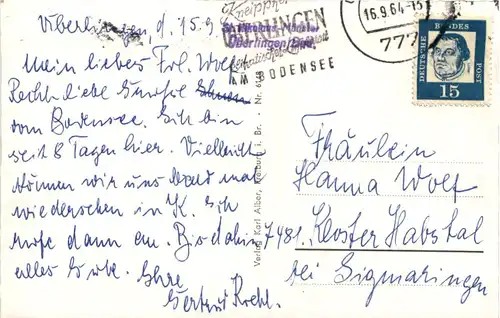 Überlingen, d. 15.9.
Mein liebes Frl. Wolf
Recht liebe Grüße
vom Bodensee. Ich bin
seit 8 Tagen hier. Vielleicht
können wir uns bald mal
wiedersehen in K. Ich
rufe dann an. Bis dahin
alles Gute. Ihre
Gertrud Krehl.
Kneipp
ÜBERLINGEN
AM BODENSEE
St. Nikolaus-Münster
Überlingen/Bod.
16.9.64-15
777
DEUTSCHE BUNDESPOST
15
Verlag Karl Alber, Freiburg i. Br. · Nr.
Fräulein
Hanna Wolf
7481 Kloster Habstal
bei Sigmaringen